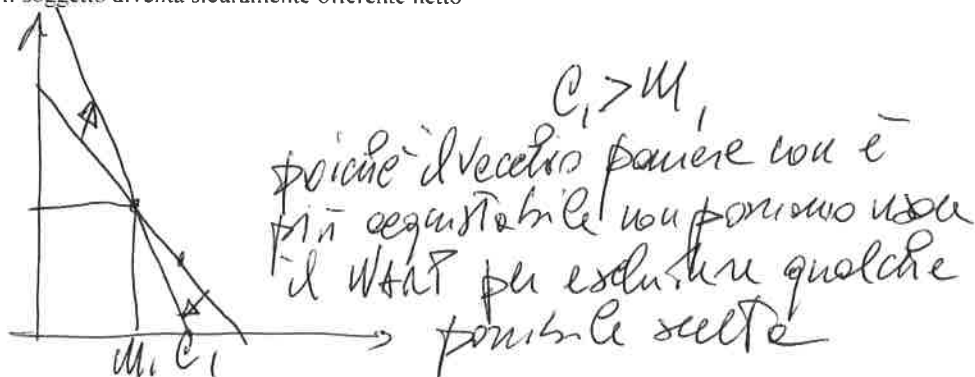 il soggetto diventa sicuramente offerente netto
C₁ > M₁
poiché il vecchio paniere non è
più acquistabile non possiamo usare
il WARP per escludere qualche
possibile scelta
M₁ C₁